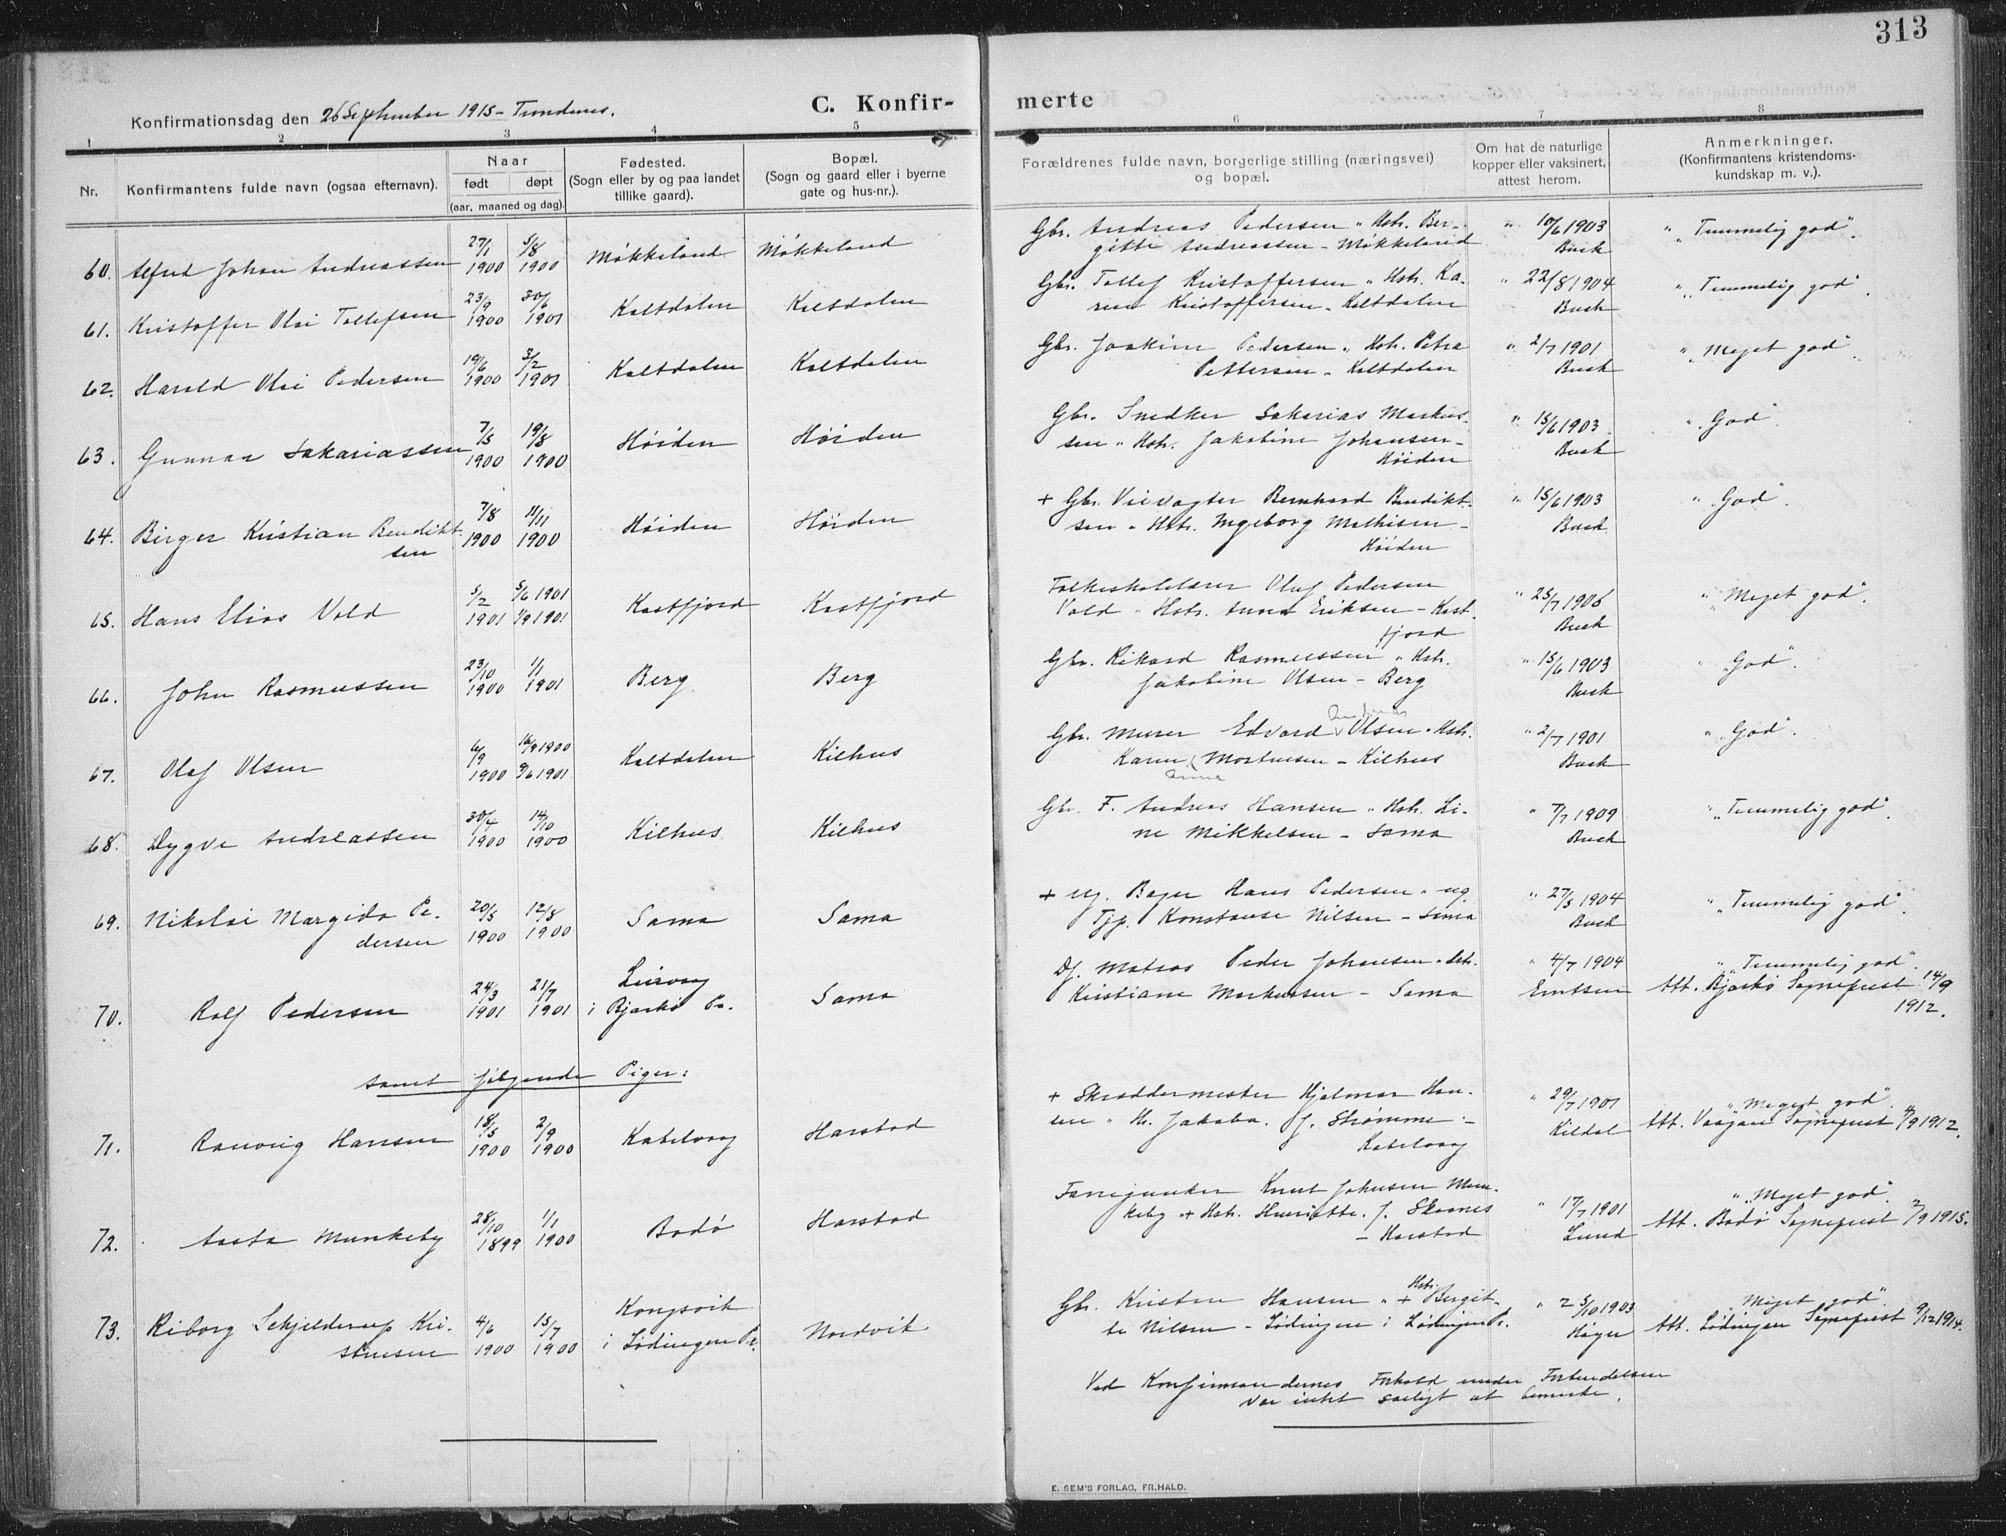 313
Konfirmationsdag den 26 September 1915 - Trondenes.
C. Konfir-
merte
1 2 3 4 5 6 7 8
Nr.
Konfirmantens fulde navn (ogsaa efternavn).
Naar
født døpt
(aar, maaned og dag).
Fødested.
(Sogn eller by og paa landet
tillike gaard).
Bopæl.
(Sogn og gaard eller i byerne
gate og hus-nr.).
Forældrenes fulde navn, borgerlige stilling (næringsvei)
og bopæl.
Om hat de naturlige
kopper eller vaksinert,
attest herom.
Anmerkninger.
(Konfirmantens kristendoms-
kundskap m. v.).
60. Alfred Johan Andreassen 27/1 1900 5/8 1900 Møkkeland Møkkeland
Gbr. Andreas Pedersen " Hstr. Ber-
gitte Andreassen - Møkkeland
" 10/6 1903
Buck
" "Temmelig god".
61. Kristoffer Olai Tollefsen 23/9 1900 30/6 1901 Kaltdalen Kaltdalen
Gbr. Tollef Kristoffersen " Hstr. Ka-
ren Kristoffersen - Kaltdalen
" 22/8 1904
Buck
" "Temmelig god".
62. Harald Olai Pedersen 19/6 1900 3/2 1901 Kaltdalen Kaltdalen
Gbr. Joakim Pedersen " Hstr. Petra
Pettersen - Kaltdalen
" 2/7 1901
Buck
" "Meget god".
63. Gunnar Sakariassen 7/5 1900 19/8 1900 Høiden Høiden
Gbr. Snedker Sakarias Markus-
sen " Hstr. Jakobine Johansen -
Høiden
" 15/6 1903
Buck
" "God".
64. Birger Kristian Bendikt-
sen 7/8 1900 11/11 1900 Høiden Høiden
+ Gbr. Veivogter Bernhard Bendikt-
sen " Hstr. Ingeborg Mathisen -
Høiden
" 15/6 1903
Buck
" "God".
65. Hans Elias Vold 5/2 1901 5/6 1901 1/9 1901 Kastfjord Kastfjord
Folkeskolelærer Oluf Pedersen
Vold " Hstr. Anna Eriksen - Kast-
fjord
" 25/7 1906
Buck
" "Meget god".
66. John Rasmussen 23/10 1900 1/1 1901 Berg Berg
Gbr. Rikard Rasmussen " Hstr.
Jakobine Olsen - Berg
" 15/6 1903
Buck
" "God".
67. Olaf Olsen 6/9 1900 16/9 1900 9/6 1901 Kaltdalen Kilhus
Gbr. Murer Edvard Olsen " Hstr.
Karen Mortensen - Kilhus
Anna
" 2/7 1901
Buck
" "God".
68. Dygve Andreassen 30/4 1900 14/10 1900 Kilhus Kilhus
Gbr. F. Andreas Hansen " Hstr. Li-
ne Mikkelsen - Sama
" 7/7 1909
Buck
" "Temmelig god".
69. Nikolai Margido Pe-
dersen 20/5 1900 12/8 1900 Sama Sama
+ ug. Bager Hans Pedersen " ug.
Tjp. Konstanse Nilsen - Sama
" 27/5 1904
Buck
" "Temmelig god".
70. Rolf Pedersen 24/3 1901 21/7 1901 Leirvaag
i Bjarkø Pr. Sama
Df. Matros Peder Johansen "
Kristiane Markussen - Sama
" 4/7 1904
Erntsen
" "Temmelig god".
Att. Bjarkø Sogneprest 14/9
1912.
samt følgende Piger:
71. Ranveig Hansen 18/5 1900 2/9 1900 Kabelvaag Harstad
+ Skræddermester Hjalmar Han-
sen " Hr. Jakoba. f. Strømme -
Kabelvaag
" 29/7 1901
Kildal
" "Meget god".
Att. Vaagan Sogneprest 4/9 1912.
72. Aasta Munkeby 28/10 1899 1/1 1900 Bodø Harstad
Knut Johnsen Mun-
keby + Hstr. Henriette. f. Skaanes
- Harstad
" 17/7 1901
Lund
" "Meget god".
Att. Bodø Sogneprest 2/9 1915.
73. Riborg Schjelderup Kri-
stensen 4/6 1900 15/7 1900 Kongsvik
i Lødingen Pr. Nordvik
Gbr. Kristen Hansen " + Hstr. Bergit-
te Nilsen - Lødingen i Lødingen Pr.
" 2 5/10 1903
Høyer
" "Meget god".
Att. Lødingen Sogneprest 9/12 1914.
Ved Konfirmandernes Forhold under Forberedelsen
var intet særligt at bemerke.
E. SEM'S FORLAG, FR.HALD.